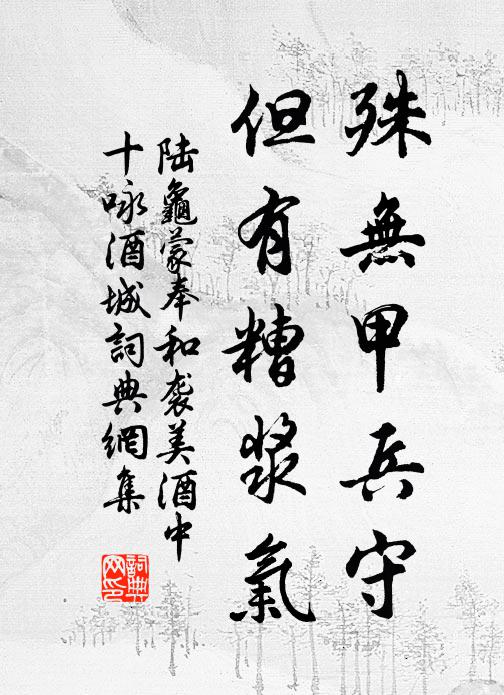 殊無甲兵守
但有糟漿氣
陆龜蒙奉和袭美酒中
十咏酒城詞典網集
詞典网印